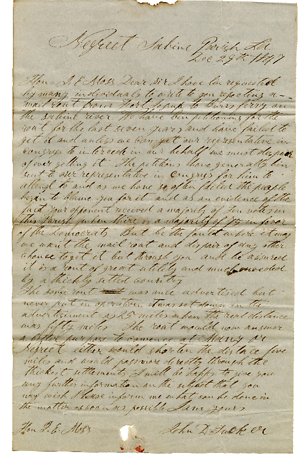 Negreet Sabine Parish La
Dec 29th 1897
Hon. P. E. Moss Dear Sir I have been requested
by many individuals to write to you respecting a
mail rout from Fort Jesup to
the Sabine river We have been petitioning for the
rout for the last seven years and have failed to
get it and unless we can get our representative in
congress to its work in our behalf we must despair
of ever getting it. The petitions have generally been
sent to our representative in Congress for him to
attend to and as we have so often failed the people
begin to blame you for it and as an evidence of the
fact your opponent received a majority of the votes in
this Parish when there is a majority of
of the Democrats But be the fault where it may
we want the mail rout and despair of any other
chance to get it but through you and be assured
it is a rout of great utility and much needed
by a thickly settled country
The same rout was once advertised but
never put in operation It was set down in the
advertisement as 25 miles when the real distance
was fifty miles The rout would now answer
a better purpose to commence at Many
Negreet either would shorten the distance five
miles and would pass directly through the
thickest settlements I will be happy to give you
any further information on the subject that you
may wish Please inform me what can be done in
the matter as soon as possible I am yours
Hon P. E. Moss John D.